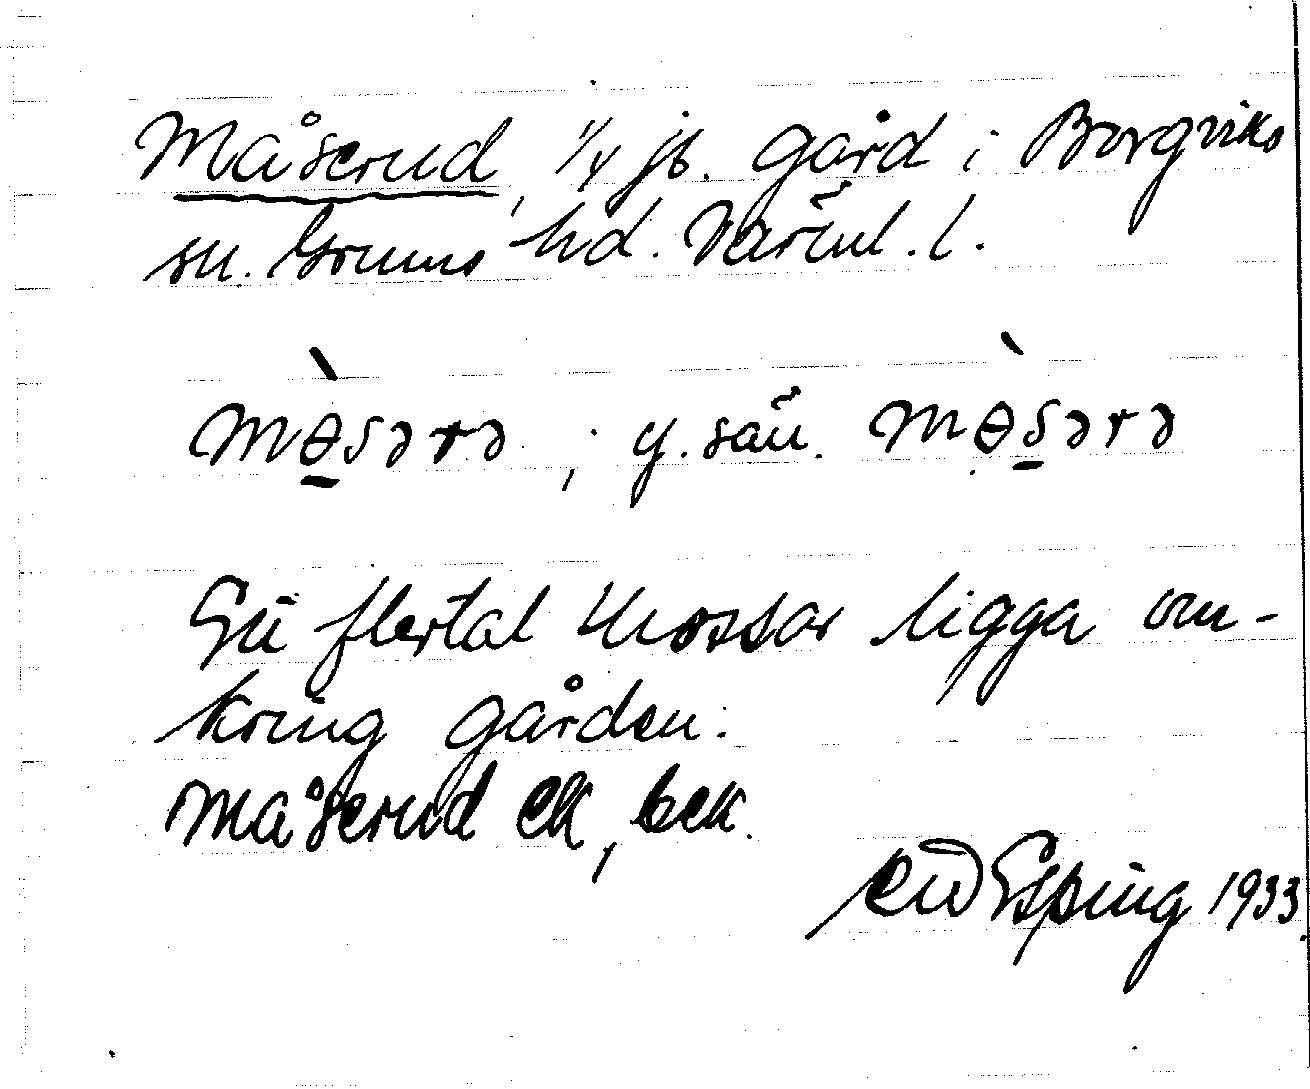 Måserud, 1/4 jb. gård i Borgviks
sn. Grums hd. Värml. l.
mɵ̀sərə ; y. sän. mɵ̀sərə
Ett flertal mossar ligga om-
kring gården.
Måserud ek, bek.
Esping 1933.